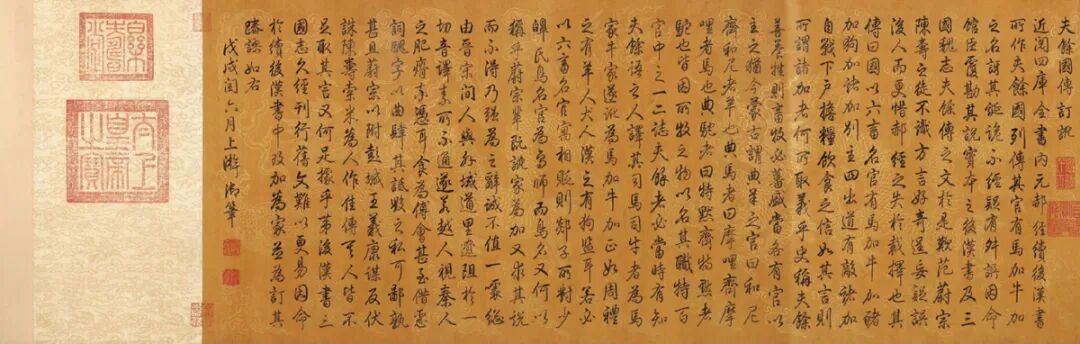 夫餘國傳訂訛
近閱四庫全書內元郝經續後漢書
所作夫餘國列傳其官有馬加牛加
之名訝其鉅詭不經疑有舛誤因命
館臣覆勘其說實本之後漢書及三
國魏志夫餘傳之文於是歎范蔚宗
陳壽之徒不識方言好奇逞妄疑誤
後人而更惜郝經之失於裁擇也其
傳曰國以六畜名官有馬加牛加豬
加狗加諸加別主四出道有敵諸加
自戰下戶擔糧飲食之信如其言則
所謂諸加者何所取義乎史稱夫餘
善養牲則畜牧必蕃盛當各有官以
主之猶今蒙古謂典羊之官曰和尼
齊和尼者羊也典馬者曰摩哩齊摩
哩者馬也典駝者曰特默齊特默者
駝也皆因所牧之物以名其職特百
官中之一二誌夫餘者必當時有知
夫餘語之人譯其司馬司牛者為馬
家牛家遂訛為馬加牛加正如周禮
之有羊人犬人漢之有狗監耳若必
以六畜名官寓相貶則郯子所對少
皞氏鳥名官為鳥師而鳥名又何以
稱乎蔚宗輩既訛家為加又求其說
而不得乃強為之辭誠不值一噱總
由晉宋間人與外域道里遼阻於一
切音譯素所不通遂若越人視秦人
之肥瘠率憑耳食為傅會甚至借惡
詞醜字以曲肆其詆毀之私可鄙孰
甚且蔚宗以附彭城王義康謀反伏
誅陳壽索米為人作佳傳其人皆不
足取其言又何足據乎第後漢書三
國志久經刊行舊文難以更易因命
於續後漢書中改加為家並為訂其
踳謬如右
戊戌閏六月上澣御筆